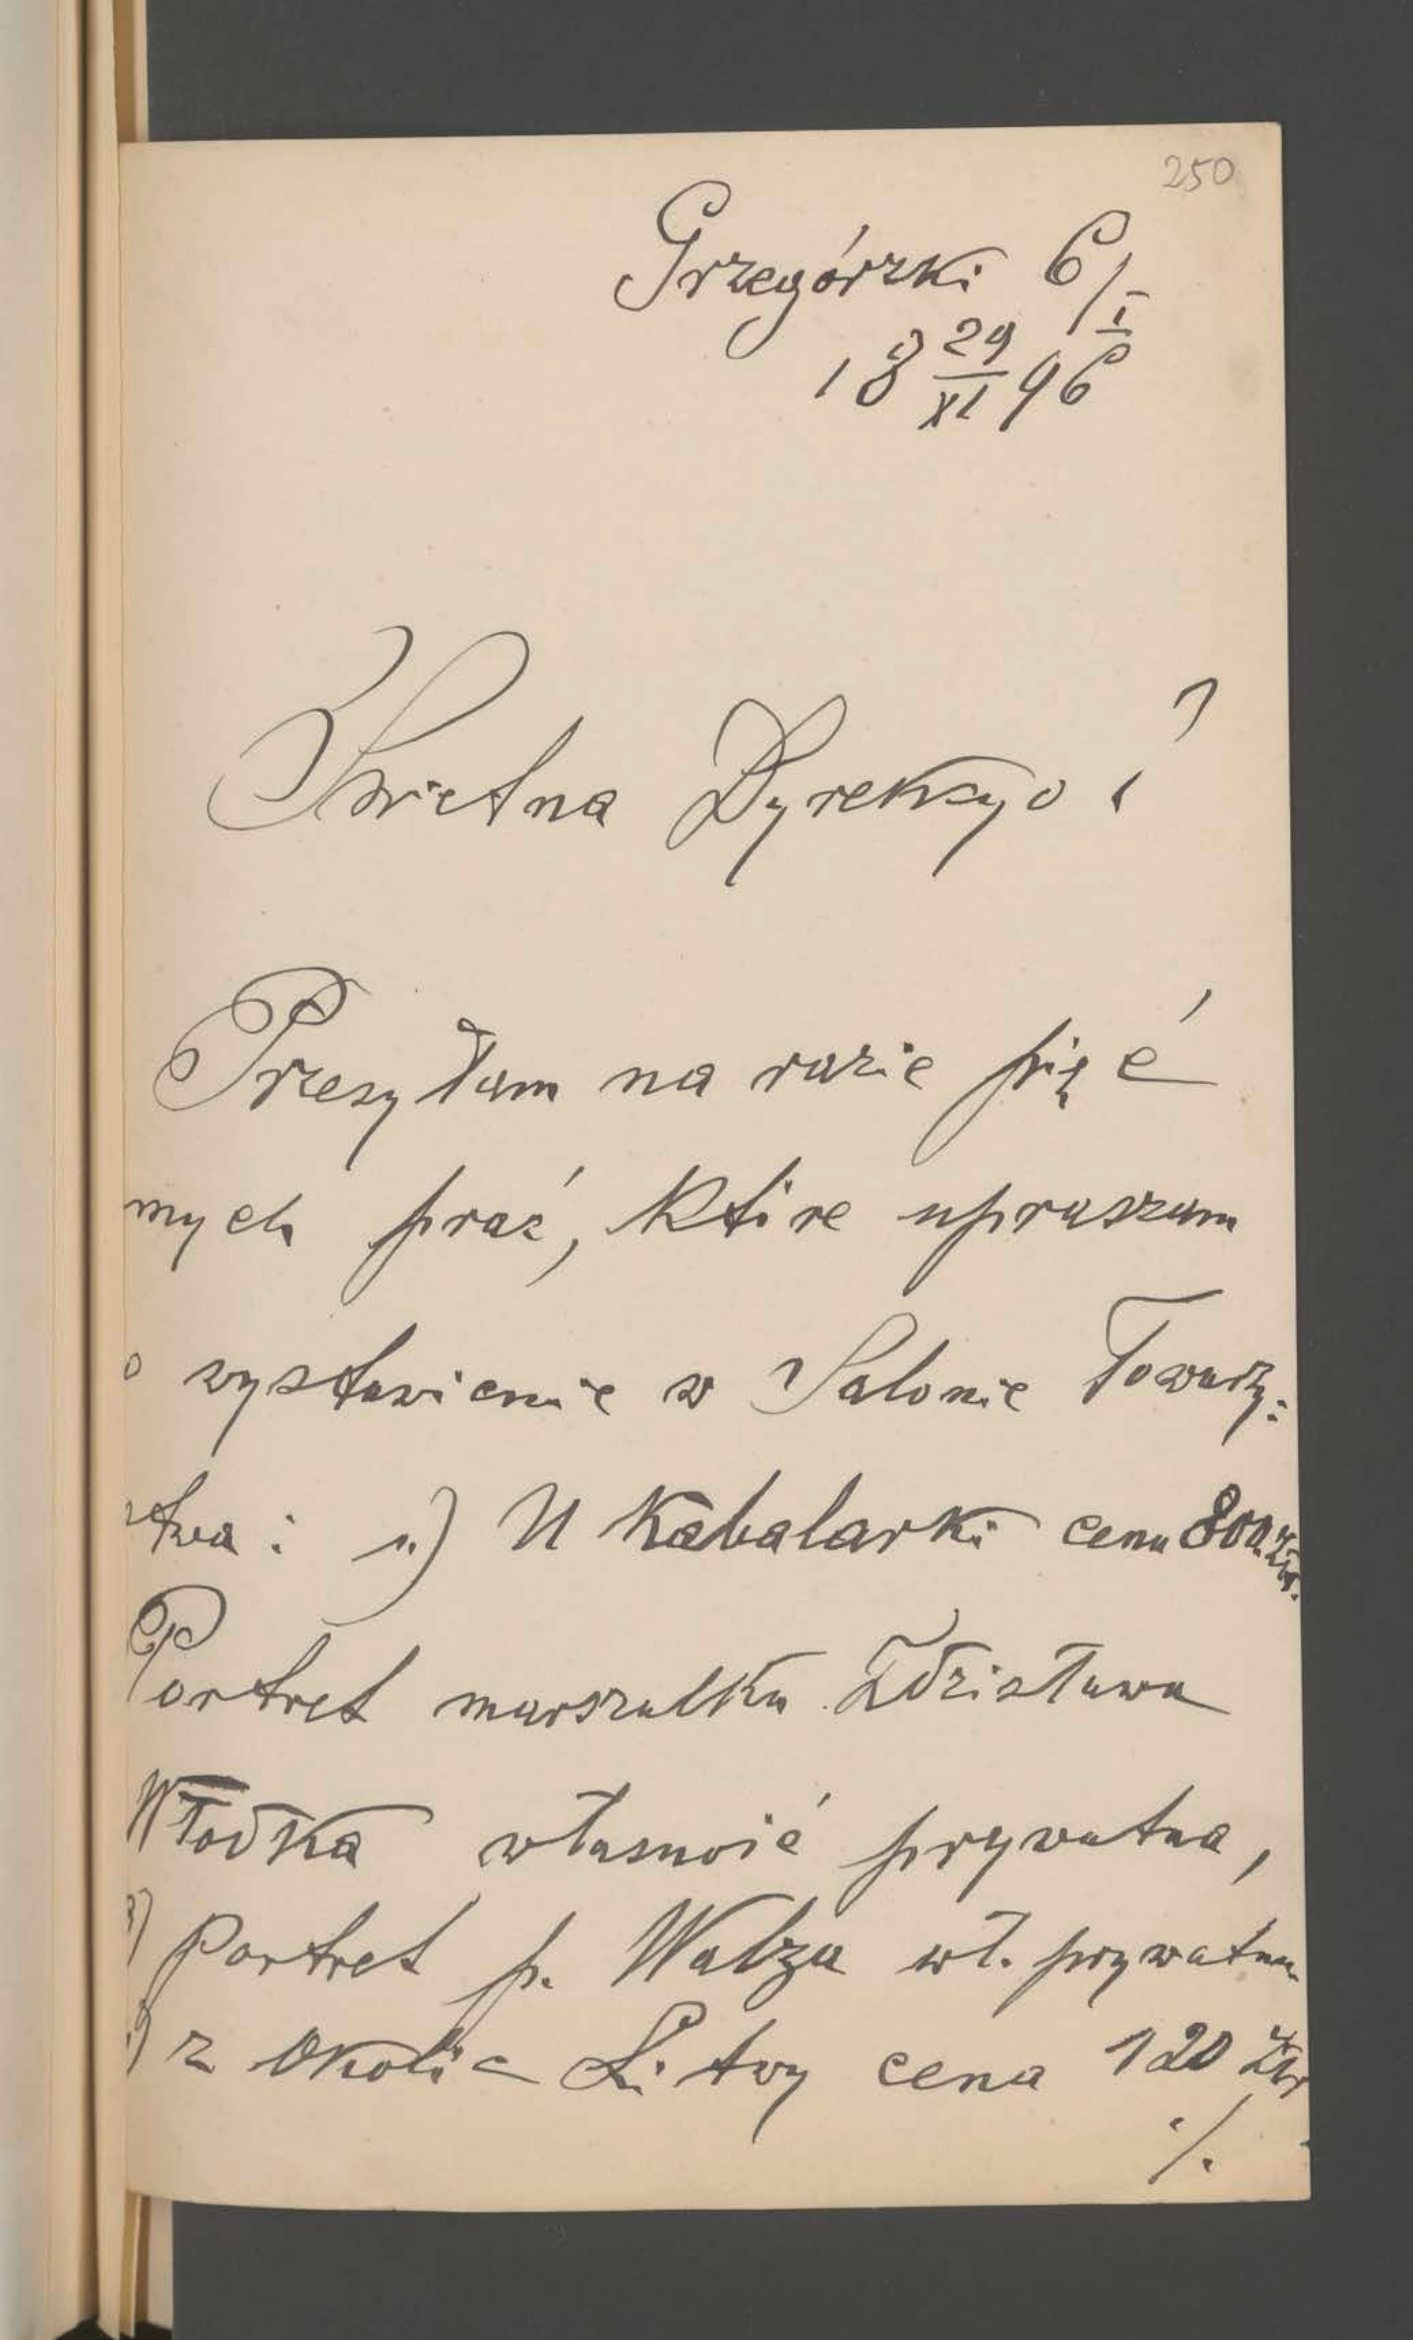 250
Grzegórzki 6/I
18 29/XI 96
Świetna Dyrekcyo!
Przesyłam na razie pięć
mych prać, które upraszam
o wystawienie w Salonie Towarzy:
stwa : 1.) U Kabalarki cena 800 złr.
Portret marszałka Zdzisława
Włodka własność prywatna,
3) Portret p. Walza wł. prywatna
) z Okolic Litwy cena 120 Złr
./.